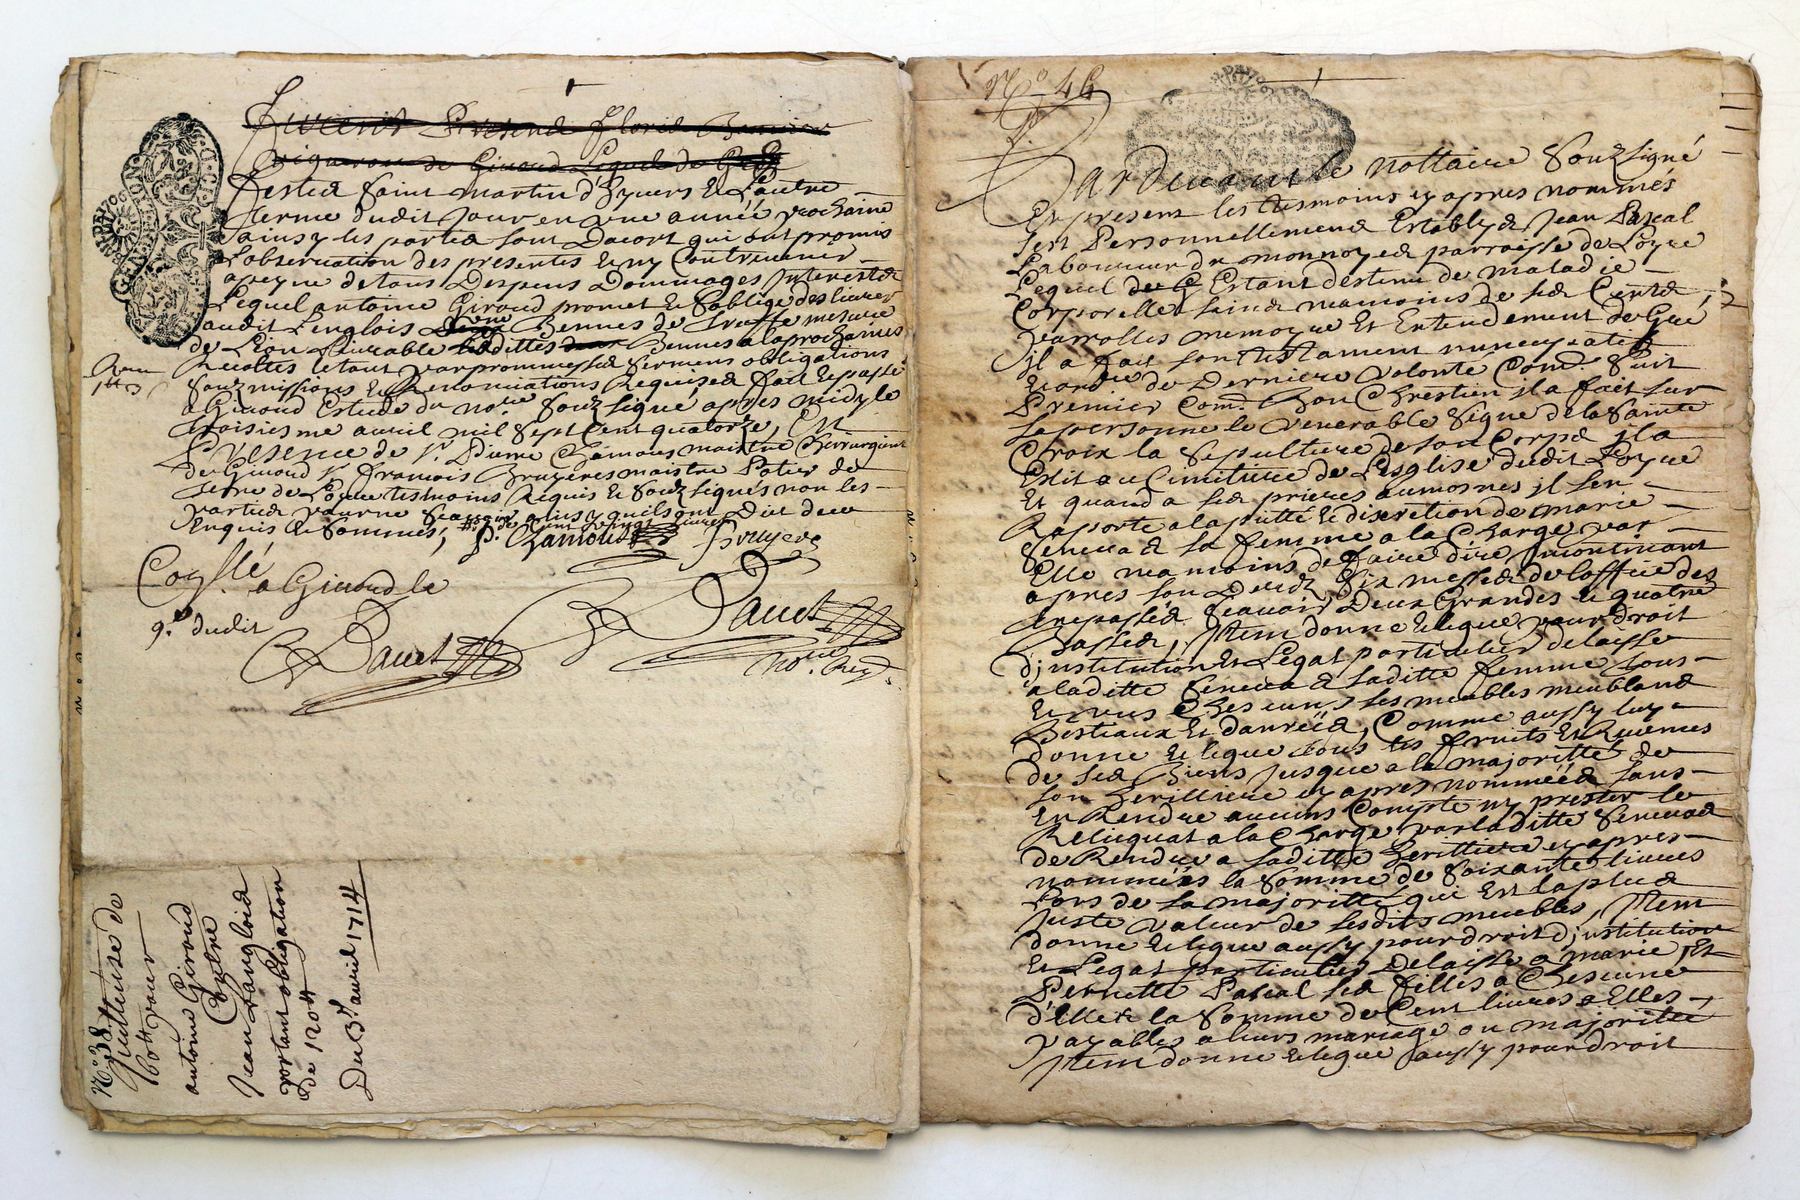 feste Saint martin d'hyvers & L'autre
terme dudit Jour en une année prochaine
ainsy les parties sont Dacort qui ont promis
L'observation des presentes & ny Contrevenir
a peyne de tous Despens Dommages Interests
Lequel antoine Giroud promet & Soblige des livrer
audit Lenglois Bennes de mesure
de Lion Livrable lesdittes Bennes a la prochaines
Recoltes le tout par promesses Sermens obligations
Souzmissions & Renonciations Requises fait & passé
a Givord Estude du no.re Souzsigné apres midy le
troisiesme avril mil Sept Cent quatorze, En
Presence de S.r Pierre Chamous maistre Cherrurgient
de Givord S.r francois Bruyeres maistre Potier de
terre de Loyre tesmoins Requis & Souzsignés non les
parties pour ne Scavoir ainsy quils ont Dit de ce
Enquis & Sommés,
P. Chamous Bruyere
Coy
a Givord le
dudit
Dauet Dauet
no.re Roy.
N.o 38
Quittance de
60 tt pour
antoine Giroud
Contre
Jean Langlois
portant obligation
de 120 tt
Du 3.e avril 1714
N.o 46
Pardevant le nottaire Souzsigné
Et present les tesmoins cy apres nommés
fert Personnellement Estably Jean Pascal
Laboureur du monnoyer parroisse de Loyre
Lequel Estant destenu de maladie
Corporelle sains neamoins de ses Cents,
parrolles memoyre Et Entendement de Gré
il a fait son testament nuncupatif
& ord.re de Derniere volonte Com.e Suit
Premier Com.e bon Chrestien il a fait sur
sa personne le venerable Signe de la Sainte
Croix la Sepulture de son Corps il a
Eslit au Cimitiere de L'Esglise dudit Loyre
Et quand a ses prieres aumosnes il sen
Raporte a la piétté & discretion de marie
Seneva sa femme a la Charge par
Elle neamoins de faire dire Incontinant
apres son Decedz Six messes de Loffice des
trepassés Scavoir Deux Grandes & quatre
Basses, Item donne & legue pour droit
d'institution Et Legat particulier delaisse
a laditte Seneva saditte femme tous
& uns Chescuns ses meubles meublans
Bestiaux Et danrées, Comme aussy luy
donne & legue tous les fruits Et Revenus
de ses Biens Jusque a la majoritté de
son herittiere cy apres nommées sans
En Rendre aucuns Compte ny prester le
Relicquat a la Charge par laditte Senevas
de Rendre a saditte herittiere cy apres
nommées la Somme de Soixante livres
Lors de sa majoritté qui Est la plus
Juste valeur de sesdits meubles, Item
donne & legue aussy pour droit d'institution
Et Legat particulier Delaisse a marie, Et
Pernette Pascal ses filles a Chescune
d'Elles la Somme de Cent livres a Elles
payables a leurs mariage ou majorittée
Item donne & legue aussy pour droit